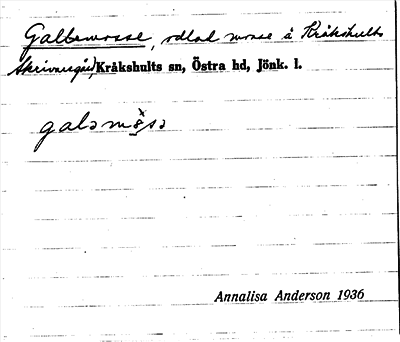 Galtemosse, odlad mosse å Kråkshults
Skrivaregård, Kråkshults sn, Östra hd, Jönk. l.
galə mòsə
Annalisa Anderson 1936